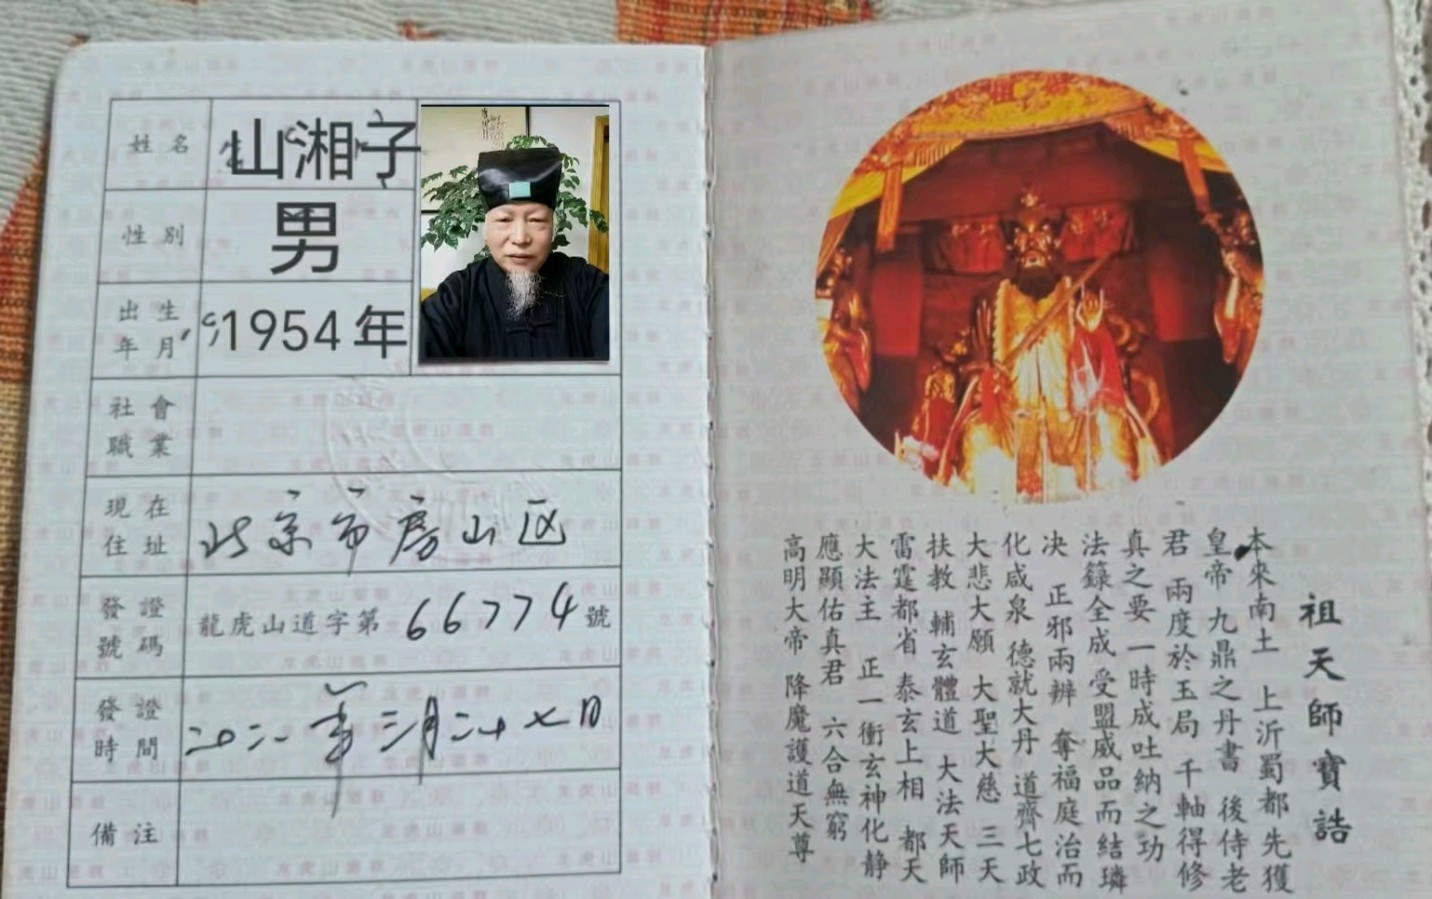 姓名 山湘子
性别 男
出生年月 1954年
社會職業
現在住址 北京市房山区
發證號碼 龍虎山道字第66774號
發證時間 二〇二一年三月二十七日
備注
祖天師寶誥
本來南土 上沂蜀都 先獲
皇帝 九鼎之丹書 後侍老
君 兩度於玉局 千軸得修
真之要 一時成吐納之功
法籙全成 受盟威品而結璘
决 正邪兩辨 奪福庭治而
化咸泉 德就大丹 道齊七政
大悲大願 大聖大慈 三天
扶教 輔玄體道 大法天師
雷霆都省 泰玄上相 都天
大法主 正一衝玄神化静
應顯佑真君 六合無窮
高明大帝 降魔護道天尊